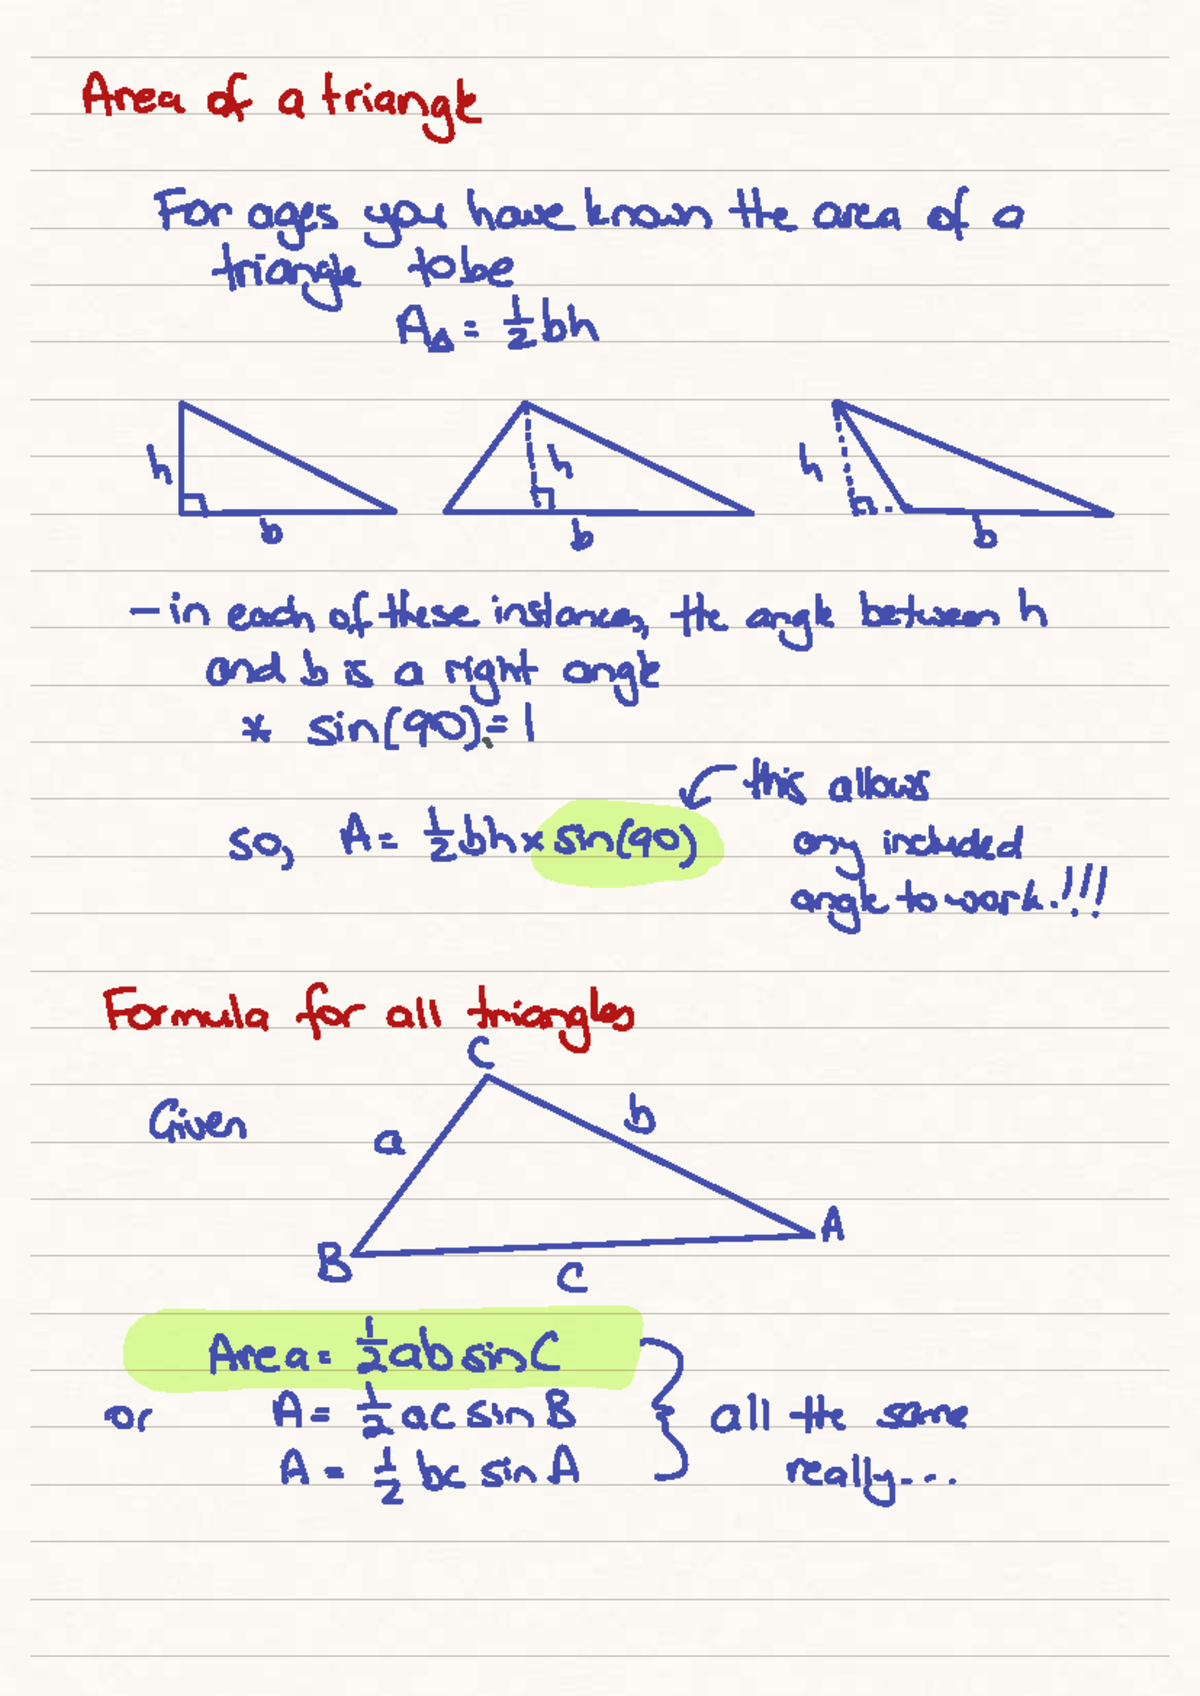 Area of a triangle
For ages you have known the area of a
triangle to be
A△ = ½bh
h
b
h
b
h
b
– in each of these instances, the angle between h
and b is a right angle
* sin(90) = 1
this allows
so, A = ½bh × sin(90)
any included
angle to work.!!!
Formula for all triangles
C
Given
a
b
A
B
c
Area = ½ab sin C
or A = ½ ac sin B
all the same
A = ½ bc sin A
really...